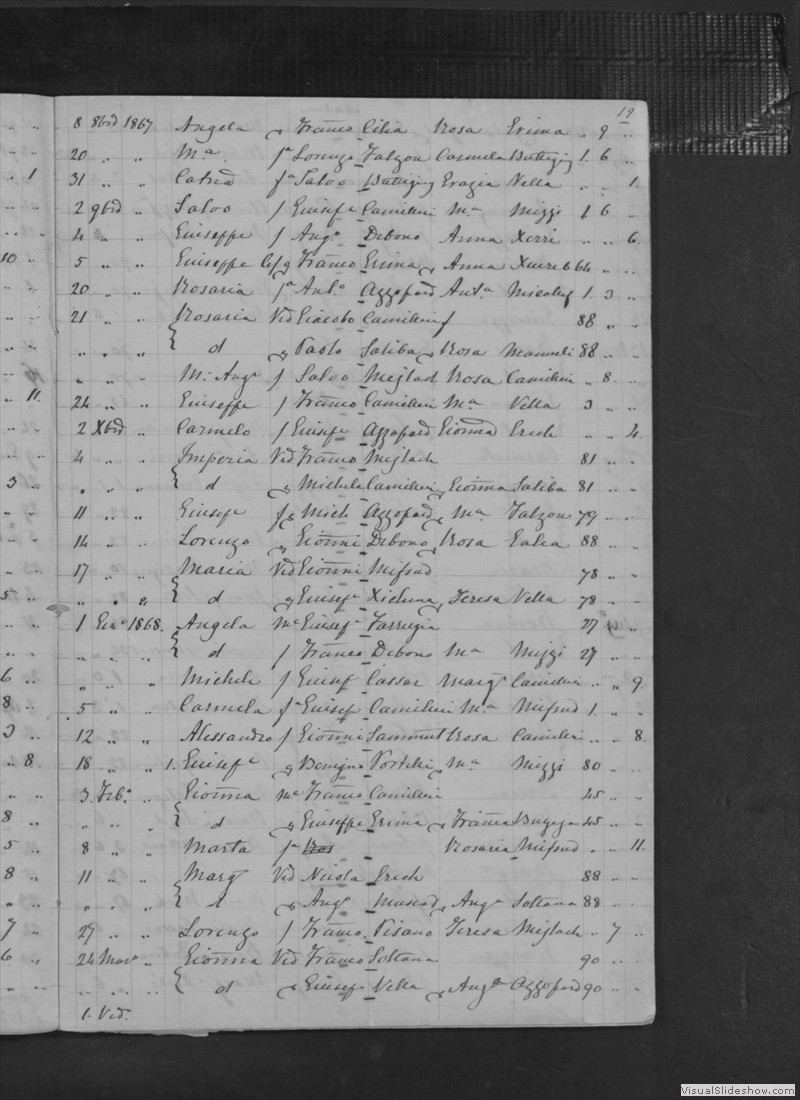 19
8 8brẽ 1867 Angela Franco Cilia Rosa Grima .. 9 ..
20 .. .. Mᵃ fᵃ Lorenzo Falzon Carmela Buttigieg 1. 6 ..
1 31 .. .. Catnã fᵃ Salvo Buttigieg Grazia Vella .. .. 1.
2 9brẽ .. Salvo f Giusepᵉ Camilleri Mᵃ Mizzi 1 6 ..
4 .. .. Giuseppe f Angᵒ Debono Anna Xerri .. .. 6.
10 5 .. .. Giuseppe Franco Grima Anna 64 .. ..
20 .. .. Rosaria fᵃ Antᵒ Azzopard Antᵃ 1. 3 ..
21 .. .. Rosaria Vid Giacobo Camilleri 88 .. ..
{ d Paolo Saliba Rosa 88 .. ..
.. .. .. M: Angᵃ f Salvo Mejlach Rosa Camilleri .. 8. ..
11. 24 .. .. Giuseppe f Franco Camilleri Mᵃ Vella 3 .. ..
2 Xbrẽ .. Carmelo f Giusepᵉ Azzopard Gionna Grech .. .. 4.
4 .. .. Imperia Vid Franco Mejlach 81 .. ..
3 .. .. .. { d Michele Camilleri Gionna Saliba 81 .. ..
11 .. .. Giusepᵉ Mich Azzopard Mᵃ Falzon 79 .. ..
14 .. .. Lorenzo Gionni Debono Rosa Galea 88 .. ..
17 .. .. Maria Vid Gionni Mifsud 78 .. ..
5 .. .. .. { d Giusepᵉ Xicluna Teresa Vella 78 .. ..
1 Genᵒ 1868. Angela Mᵉ Giusepᵉ Farrugia 27 .. ..
.. .. .. { d f Franco Debono Mᵃ Mizzi 27 .. ..
6 .. .. .. Michele f Giusepᵉ Cassar Margᵗ Camilleri .. .. 9.
8 5 .. .. Carmela fᵃ Giusepᵉ Camilleri Mᵃ Mifsud 1. .. ..
3 12 .. .. Alessandro f Gionni Sammut Rosa Camilleri .. .. 8.
8 18 .. .. 1. Giusepᵉ Benigno Portelli Mᵃ Mizzi 80 .. ..
3. Febᵒ .. Gionna Mᵉ Franco Camilleri 45 .. ..
8 .. .. .. { d Giuseppe Grima Franca Bugeja 45 .. ..
5 8 .. .. Marta fᵃ Rosaria Mifsud .. .. 11.
8 11 .. .. Margᵗ Vid Nicola Grech 88 .. ..
.. .. .. { d Angᵒ Muscad Angᵃ Soltana 88 .. ..
7 27 .. .. Lorenzo f Franco Pisano Teresa Mejlach .. 7 ..
6 24 Marᵒ .. Gionna Vid Franco Soltana 90 .. ..
.. .. .. { d Giusepᵉ Vella Angᵃ Azzopard 90 .. ..
1. Ved.
VisualSlideshow.com